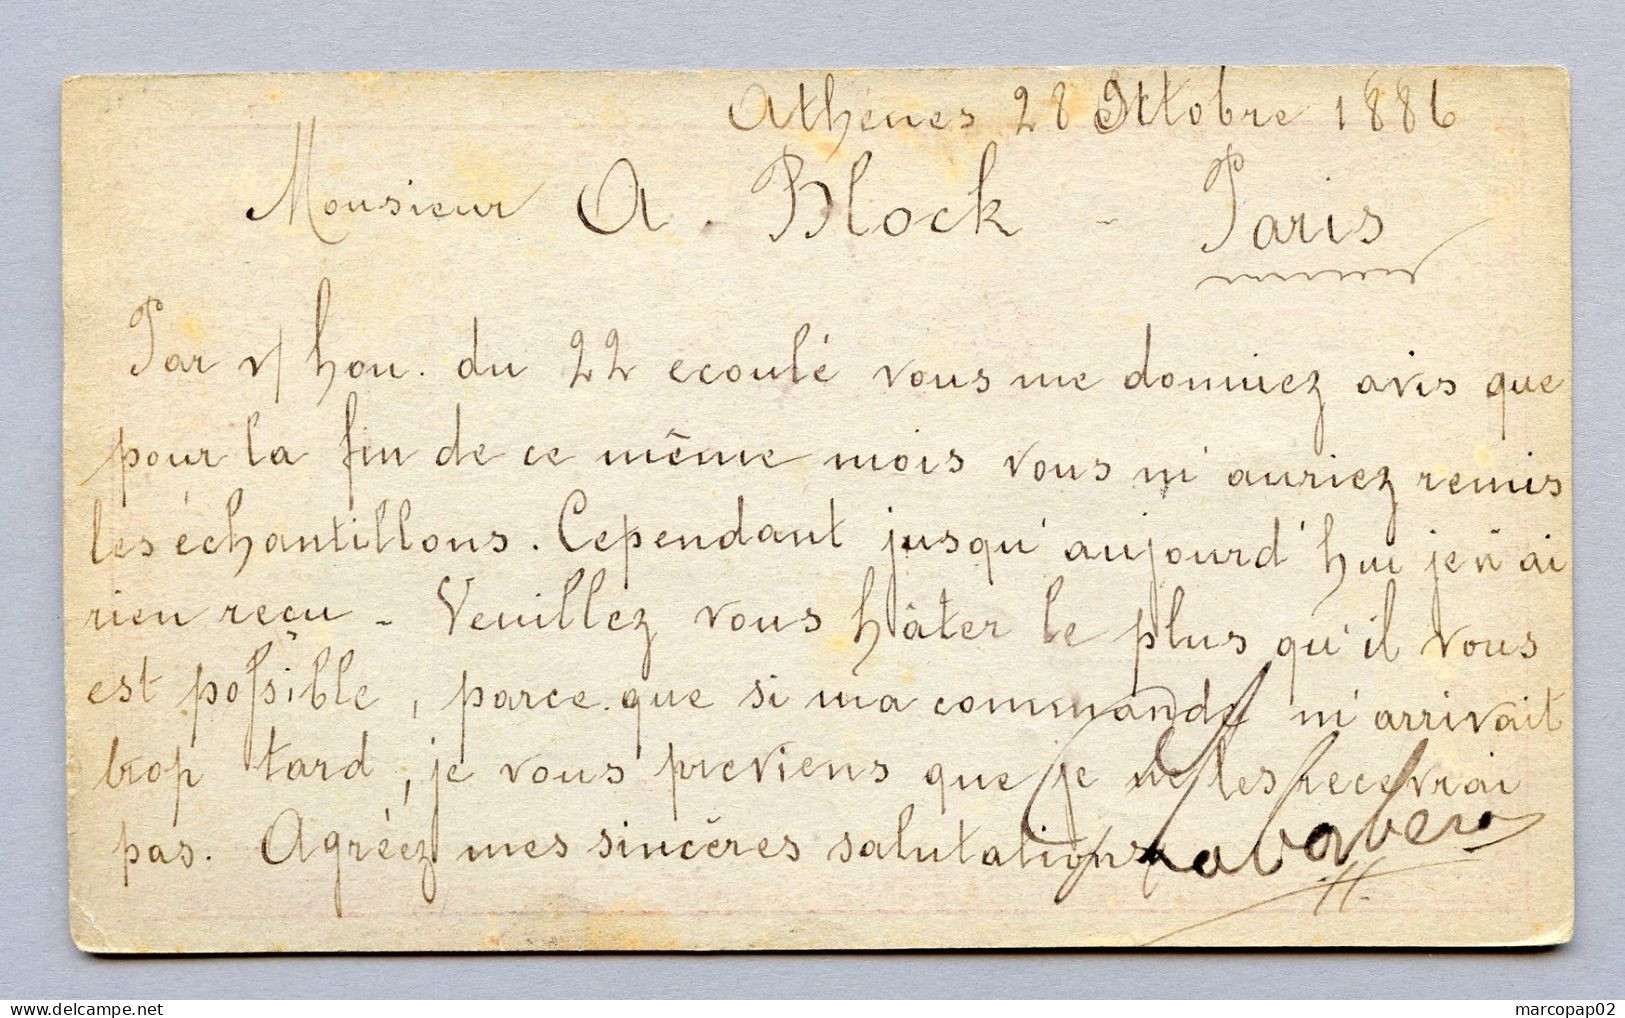 Athènes 28 Ottobre 1886
Monsieur A. Block - Paris
Par v/ hon. du 22 ecoulé vous me donniez avis que
pour la fin de ce même mois vous m'auriez remis
les échantillons. Cependant jusqu'aujourd'hui je n'ai
rien reçu - Veuillez vous hâter le plus qu'il vous
est possible, parce que si ma commande m'arrivait
trop tard, je vous previens que je ne les recevrai
pas. Agréez mes sincères salutations
marcopap02